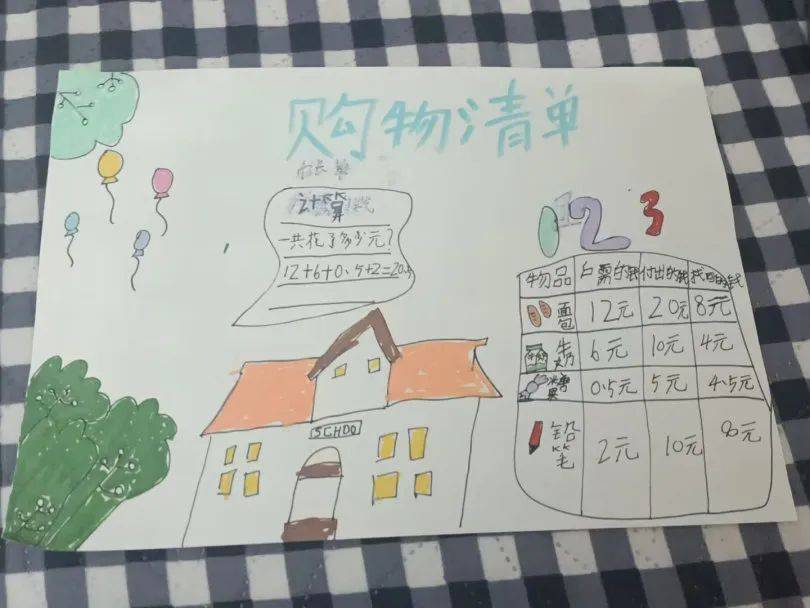 购物清单
计算
一共花了多少元?
12+6+0.5+2=20.5
SCHOO
1 2 3
物品 所需的钱 付出的钱 找回的钱
面包 12元 20元 8元
牛奶 6元 10元 4元
糖果 0.5元 5元 4.5元
铅笔 2元 10元 8元